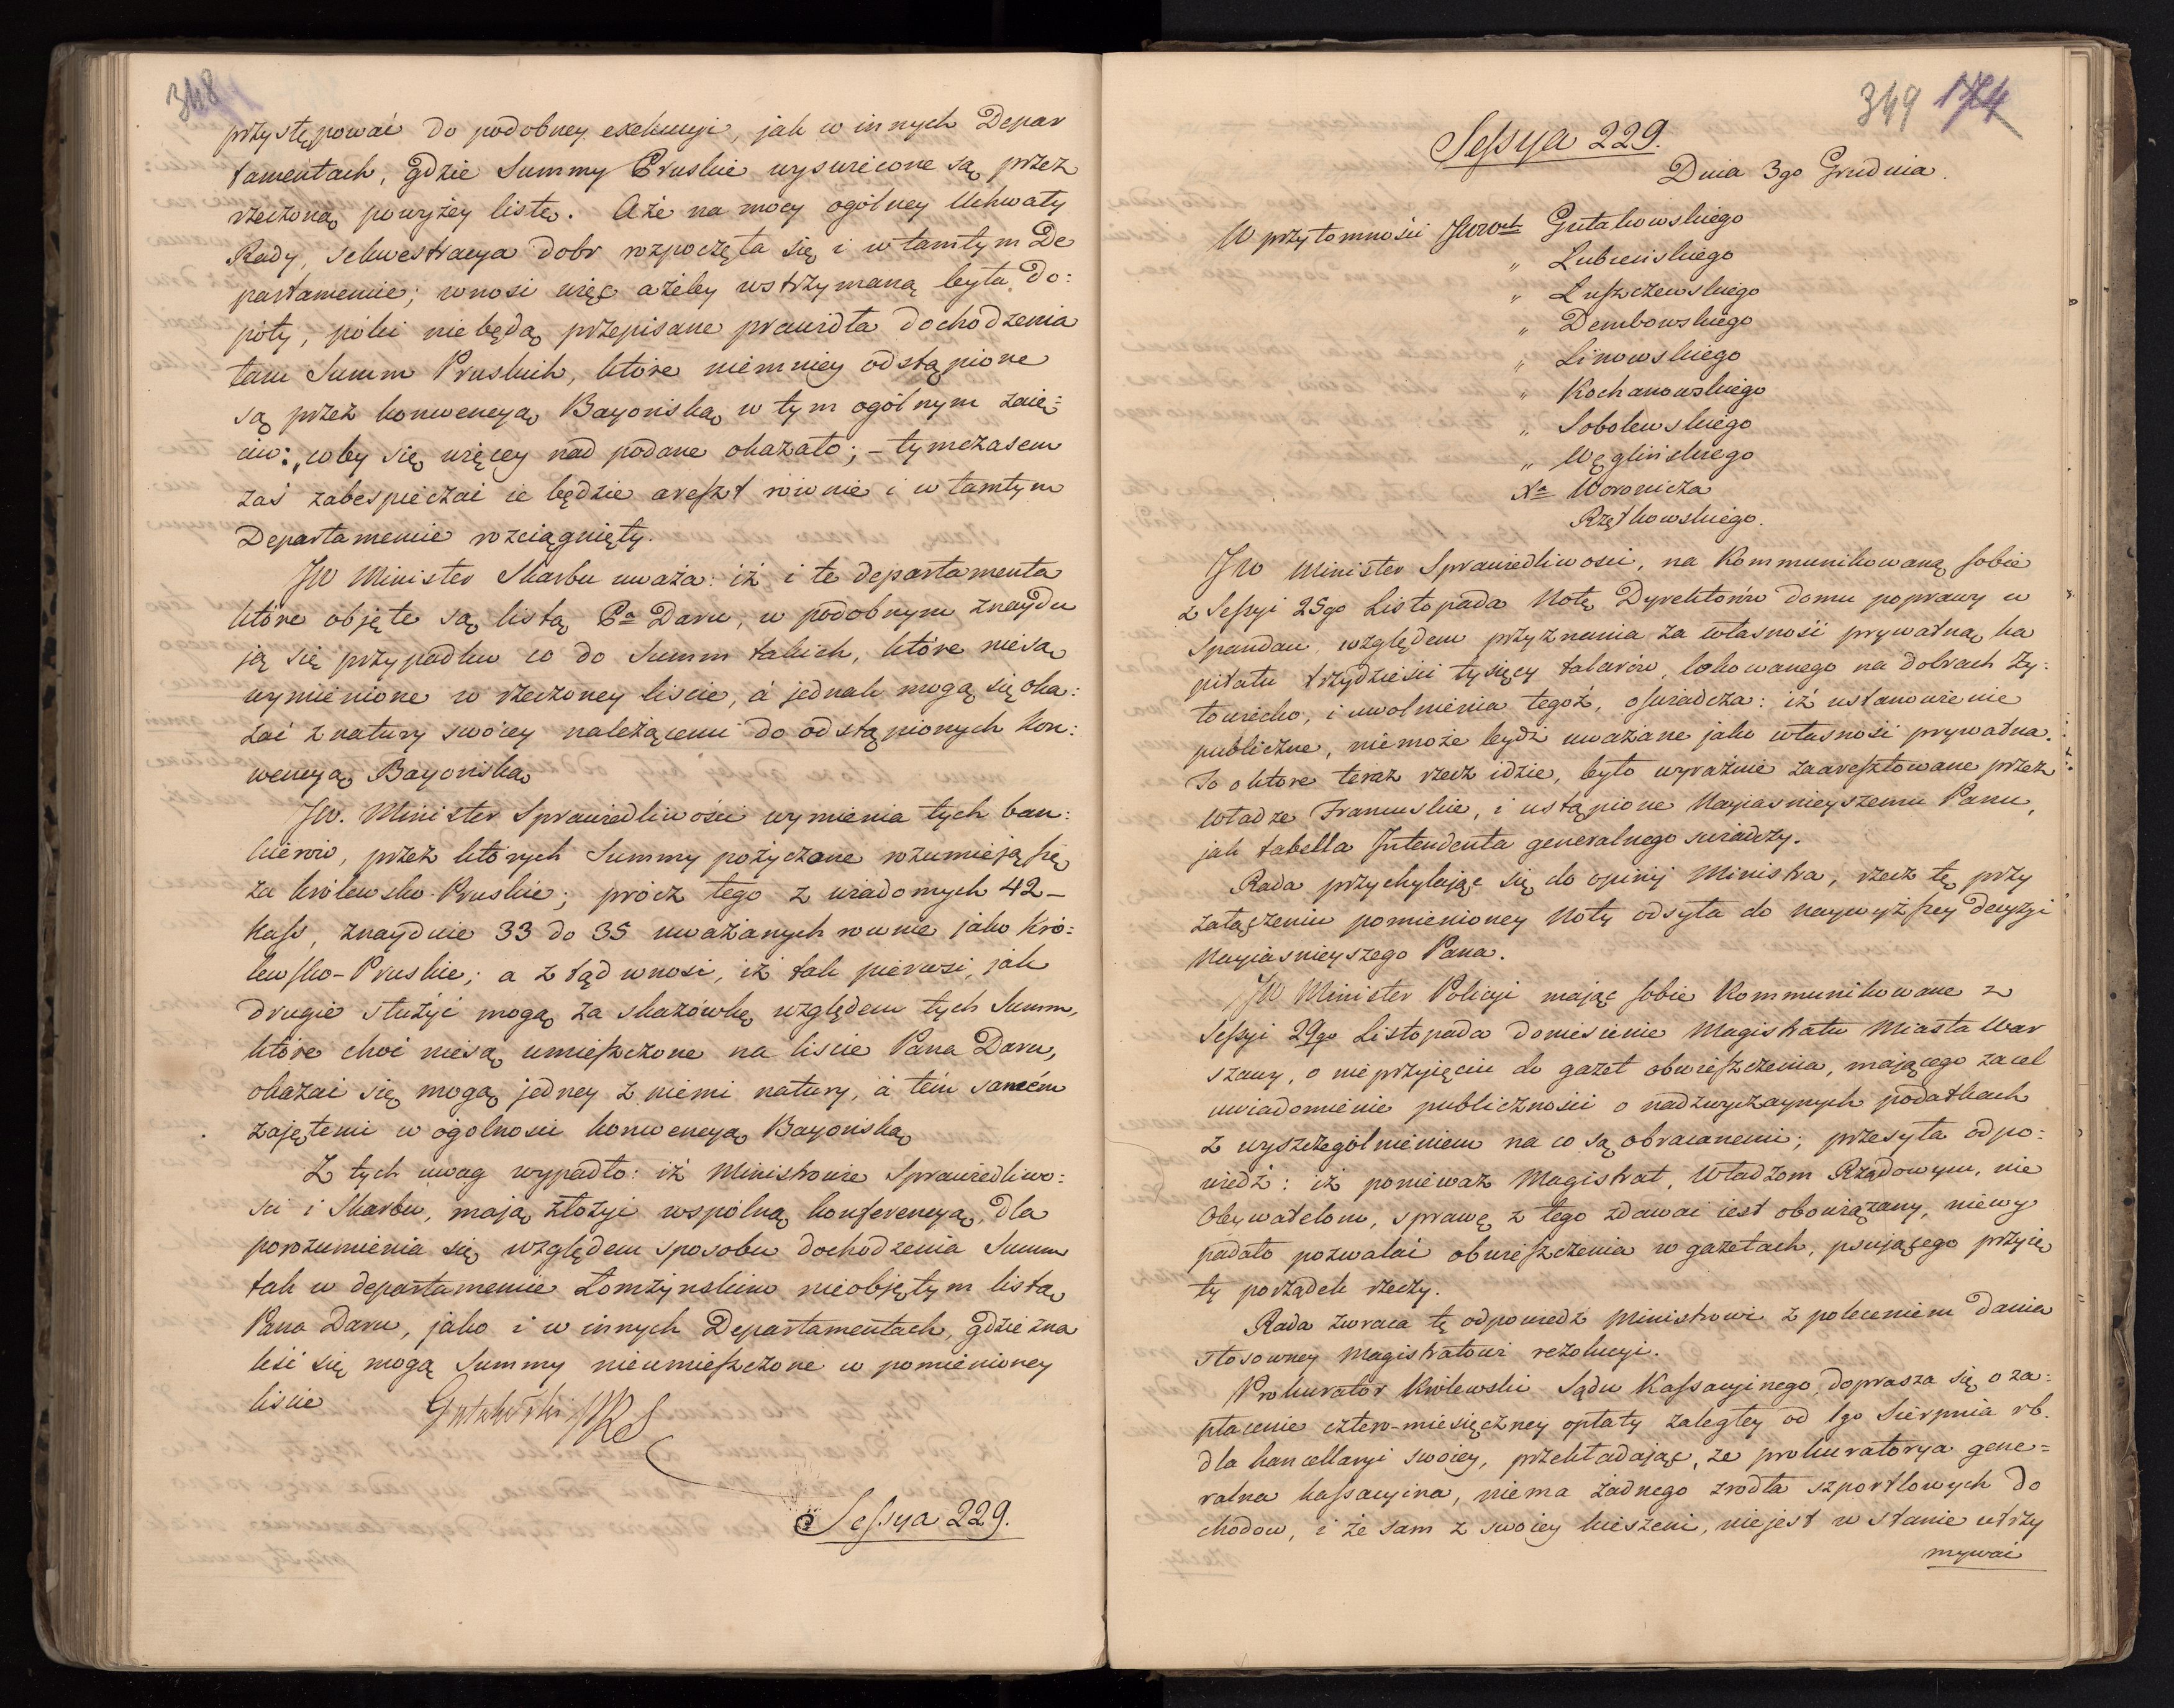 348
przystępować do podobney exekucyi, jak w innych Depar
tamentach, gdzie Summy Pruskie wyswiecone są przez
rzeczoną powyżey listę. Aże na mocy ogólney Uchwały
Rady, sekwestracya dobr rozpoczęta się i w tamtym De
partamencie; wnosi więc ażeby wstrzymaną była do:
póty, póki nie będą przepisane prawidła dochodzenia
tam Summ Pruskich, które niemniey odstąpione
są przez konwencyą Bayońską w tym ogólnym zaię:
ciu: „coby się więcey nad podane okazało; – tymczasem
zaś zabespieczać ie będzie areszt równie i w tamtym
Departamencie rozciągnięty.
JW Minister Skarbu uważa: iż i te departamenta
które objęte są listą Pa Daru, w podobnym znaydu
ją się przypadku co do Summ takich, które niesą
wymienione w rzeczoney liscie, á jednak mogą się oka:
zać z natury swoiey należącemi do odstąpionych kon:
wencyą Bayońską
JW. Minister Sprawiedliwości wymienia tych ban:
kierów, przez których Summy pożyczane rozumieją się
za królewsko Pruskie; prócz tego z wiadomych 42 –
Kass, znayduie 33 do 35 uważanych rownie jako Kró:
lewsko-Pruskie; a ztąd wnosi, iż tak pierwsi, jak
drugie służyć mogą za skazówkę względem tych Summ,
które choć niesą umieszczone na liscie Pana Daru,
okazać się mogą jedney z niemi natury, á tém samém
zajętemi w ogolnosci konwencyą Bayońską
Z tych uwag wypadło: iż Ministrowie Sprawiedliwo:
sci i Skarbu, mają złożyć wspólną konferencyą, dla
porozumienia się względem sposobu dochodzenia Summ
tak w departamencie Łomżyńskim nieobjętym listą
Pana Daru, jako i w innych Departamentach, gdzie zna
leść się mogą Summy nieumieszczone w pomienioney
liscie
Gutakowski PRS
Sessya 229.
349 174
Sessya 229.
Dnia 3go Grudnia.
W przytomności JWWch Gutakowskiego
„ Lubieńskiego
„ Luszczewskiego
„ Dembowskiego
„ Linowskiego
„ Kochanowskiego
„ Sobolewskiego
„ Węglińskiego
Xa Woronicza
Rzętkowskiego.
JW Minister Sprawiedliwosci, na Kommunikowaną sobie
z Sessyi 25go Listopada Notę Dyrektorów domu poprawy w
Spandau, względem przyznania za własność prywatną ka
pitału trzydzieści tysięcy talarów, lokowanego na dobrach Ży:
towiecko, i uwolnienia tegoż, oswiadcza: iż ustanowienie
publiczne, niemoże bydź uważane jako własność prywatna.
To o które teraz rzecz idzie, było wyraźnie zaaresztowane przez
Władze Francuskie, i ustąpione Nayiasnieyszemu Panu,
jak tabella Intendenta generalnego swiadczy.
Rada przychylając się do opinij Ministra, rzecz tę przy
załączeniu pomienioney Noty odsyła do naywyższey decyzyi
Nayiasnieyszego Pana.
JW Minister Policyi mając sobie Kommunikowane z
Sessyi 29go Listopada doniesienie Magistratu Miasta War
szawy, o nieprzyięciu do gazet obwieszczenia, mającego za cel
uwiadomienie publiczności o nadzwyczaynych podatkach
z wyszczególnieniem na co są obracanemi; przesyła odpo:
wiedź: iż ponieważ Magistrat, Władzom Rządowym, nie
Obywatelom, sprawę z tego zdawać iest obowiązany, niewy
padało pozwalać obwieszczenia w gazetach, psującego przyię
ty porządek rzeczy.
Rada zwraca tę odpowiedź Ministrowi z poleceniem dania
stosowney Magistratowi rezolucyi.
Prokurator Królewski Sądu Kassacyinego, doprasza się o za:
płacenie cztero-miesięczney opłaty zaległey od 1go Sierpnia rb.
dla kancellaryi swoiey, przekładając, że prokuratorya gene=
ralna kassacyina, niema żadnego zrodła szportlowych do
chodow, i że sam z swoiey kieszeni, niejest w stanie utrzy
mywać